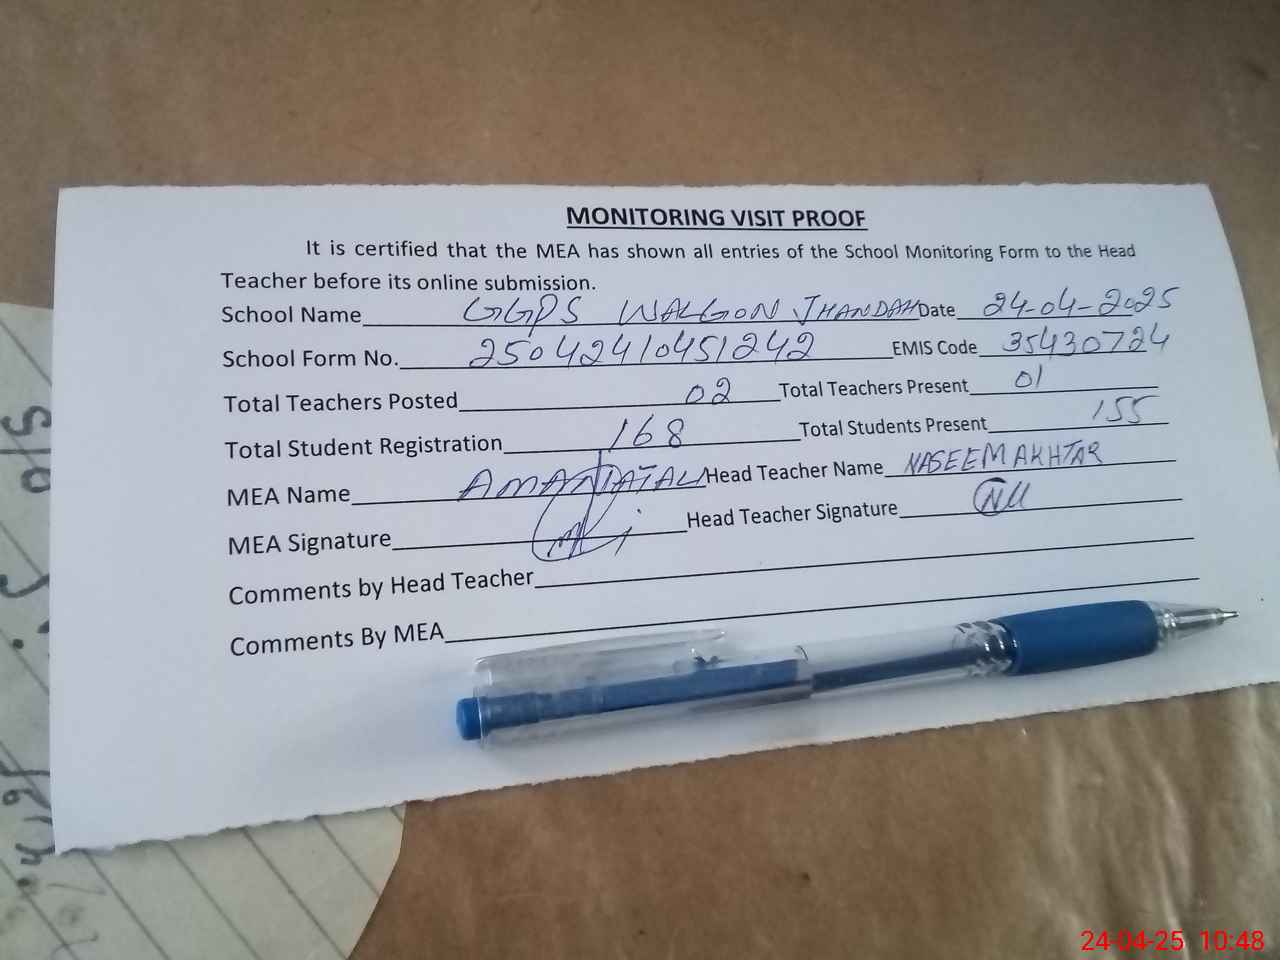 MONITORING VISIT PROOF
It is certified that the MEA has shown all entries of the School Monitoring Form to the Head
Teacher before its online submission.
School Name GGPS WALGON JHANDAH Date 24-04-2025
School Form No. 25042410451242 EMIS Code 35430724
Total Teachers Posted 02 Total Teachers Present 01
Total Student Registration 168 Total Students Present 155
MEA Name AMANATALI Head Teacher Name NASEEM AKHTAR
MEA Signature Head Teacher Signature
Comments by Head Teacher
Comments By MEA
24-04-25 10:48